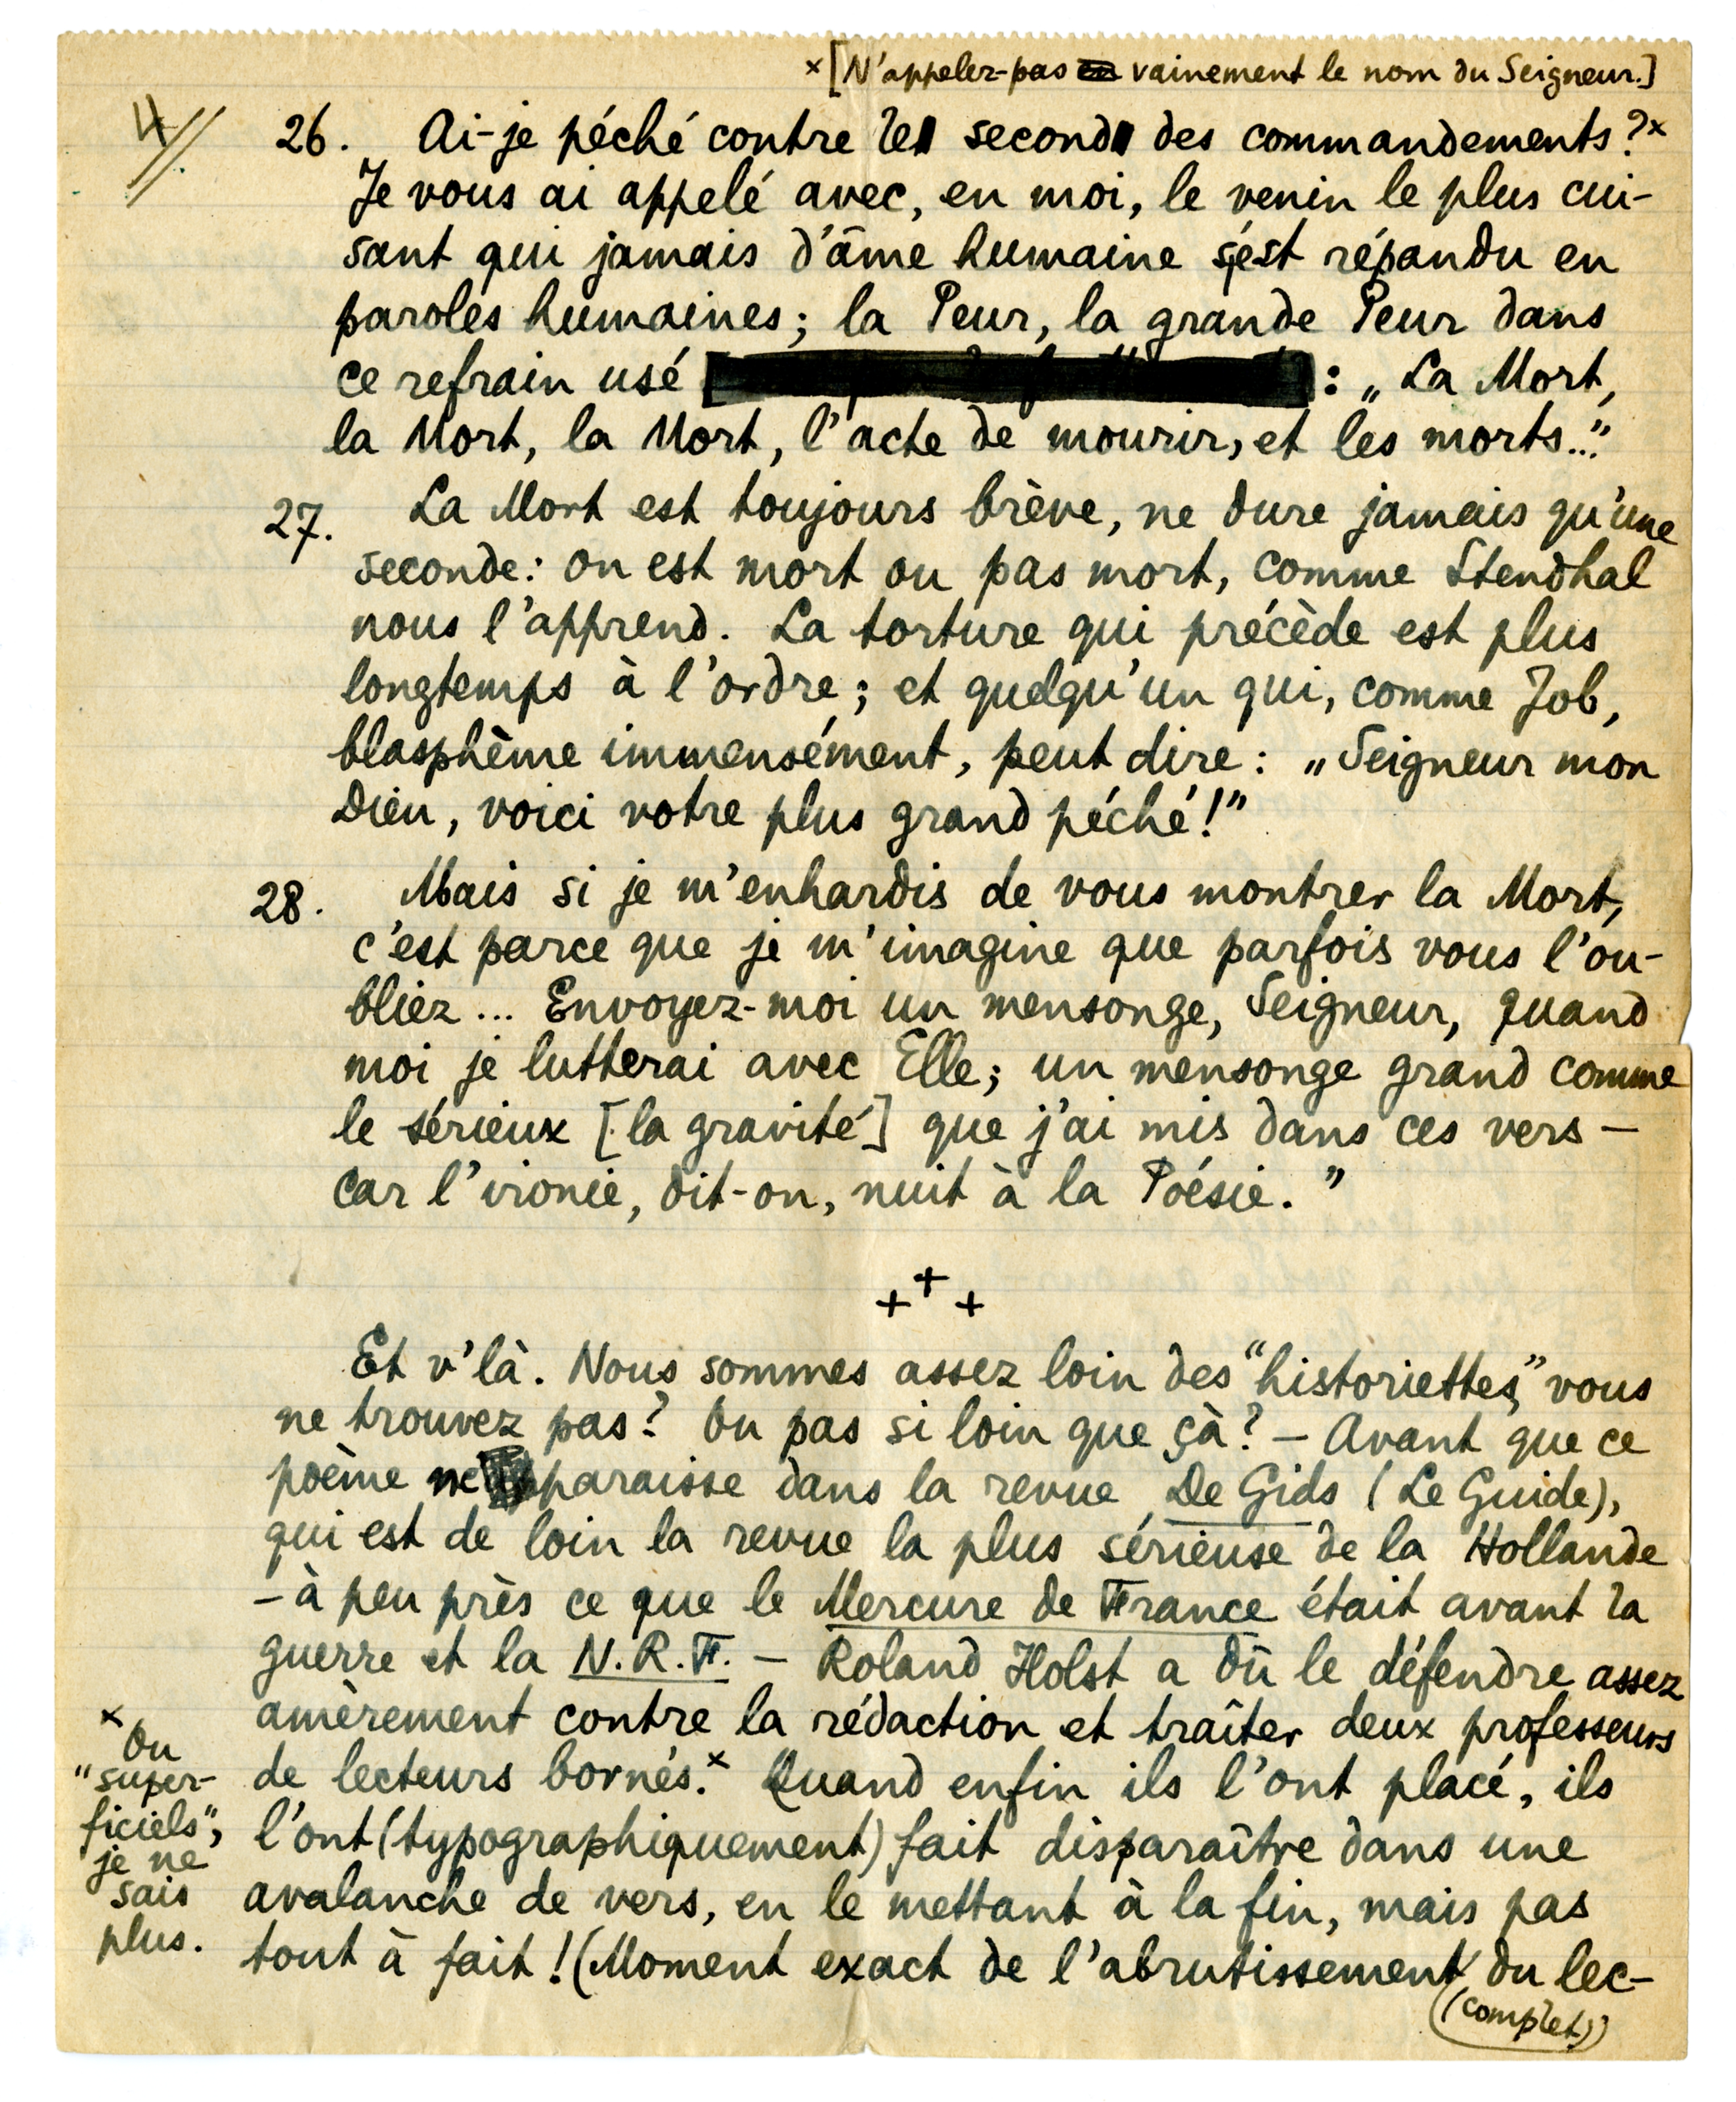 ×[N'appelez-pas vainement le nom du Seigneur.]
4//.
26. Ai-je péché contre le second des commandements?×
Je vous ai appelé avec, en moi, le venin le plus cui-
sant qui jamais d'âme humaine s'est répandu en
paroles humaines; la Peur, la grande Peur dans
ce refrain usé : „La Mort,
la Mort, la Mort, l'acte de mourir, et les morts..."
27. La Mort est toujours brève, ne dure jamais qu'une
seconde: on est mort ou pas mort, comme Stendhal
nous l'apprend. La torture qui précède est plus
longtemps à l'ordre; et quelqu'un qui, comme Job,
blasphème immensément, peut dire: „Seigneur mon
Dieu, voici votre plus grand péché!"
28. Mais si je m'enhardis de vous montrer la Mort,
c'est parce que je m'imagine que parfois vous l'ou-
bliez... Envoyez-moi un mensonge, Seigneur, quand
moi je lutterai avec Elle; un mensonge grand comme
le sérieux [la gravité] que j'ai mis dans ces vers –
car l'ironie, dit-on, nuit à la Poésie."
+ + +
Et v'là. Nous sommes assez loin des "historiettes," vous
ne trouvez pas? Ou pas si loin que çà? – Avant que ce
poème ne paraisse dans la revue De Gids (Le Guide),
qui est de loin la revue la plus sérieuse de la Hollande
– à peu près ce que le Mercure de France était avant la
guerre et la N.R.F. – Roland Holst a dû le défendre assez
amèrement contre la rédaction et traîter deux professeurs
de lecteurs bornés.× Quand enfin ils l'ont placé, ils
l'ont (typographiquement) fait disparaître dans une
avalanche de vers, en le mettant à la fin, mais pas
tout à fait! (Moment exact de l'abrutissement du lec-
(complet))
×
Ou
"super-
ficiels",
je ne
sais
plus.